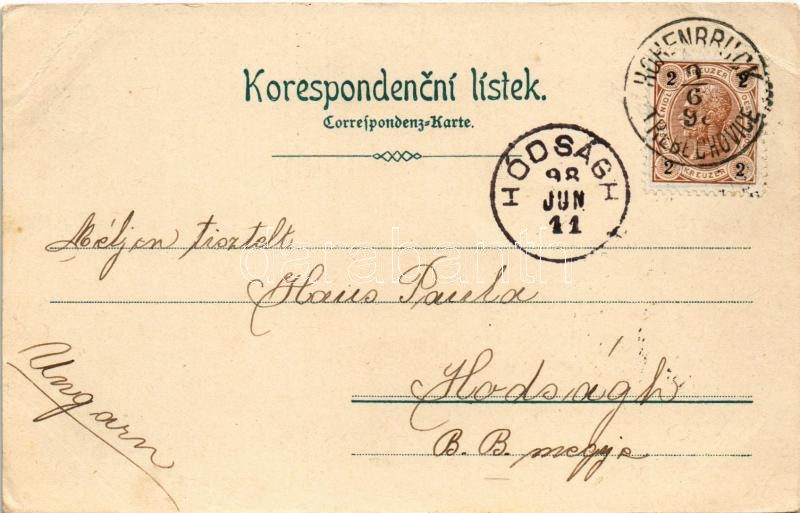 Korespondenční lístek.
Correspondenz-Karte.
HOHENBRUCK
9
6
98
TŘEBECHOVICE
2 KREUZER 2
2 KREUZER 2
HÓDSÁGH
98
JUN
11
Méljen tisztelt
Haus Paula
Hodságh
B. B. megye
Ungarn
darabanth